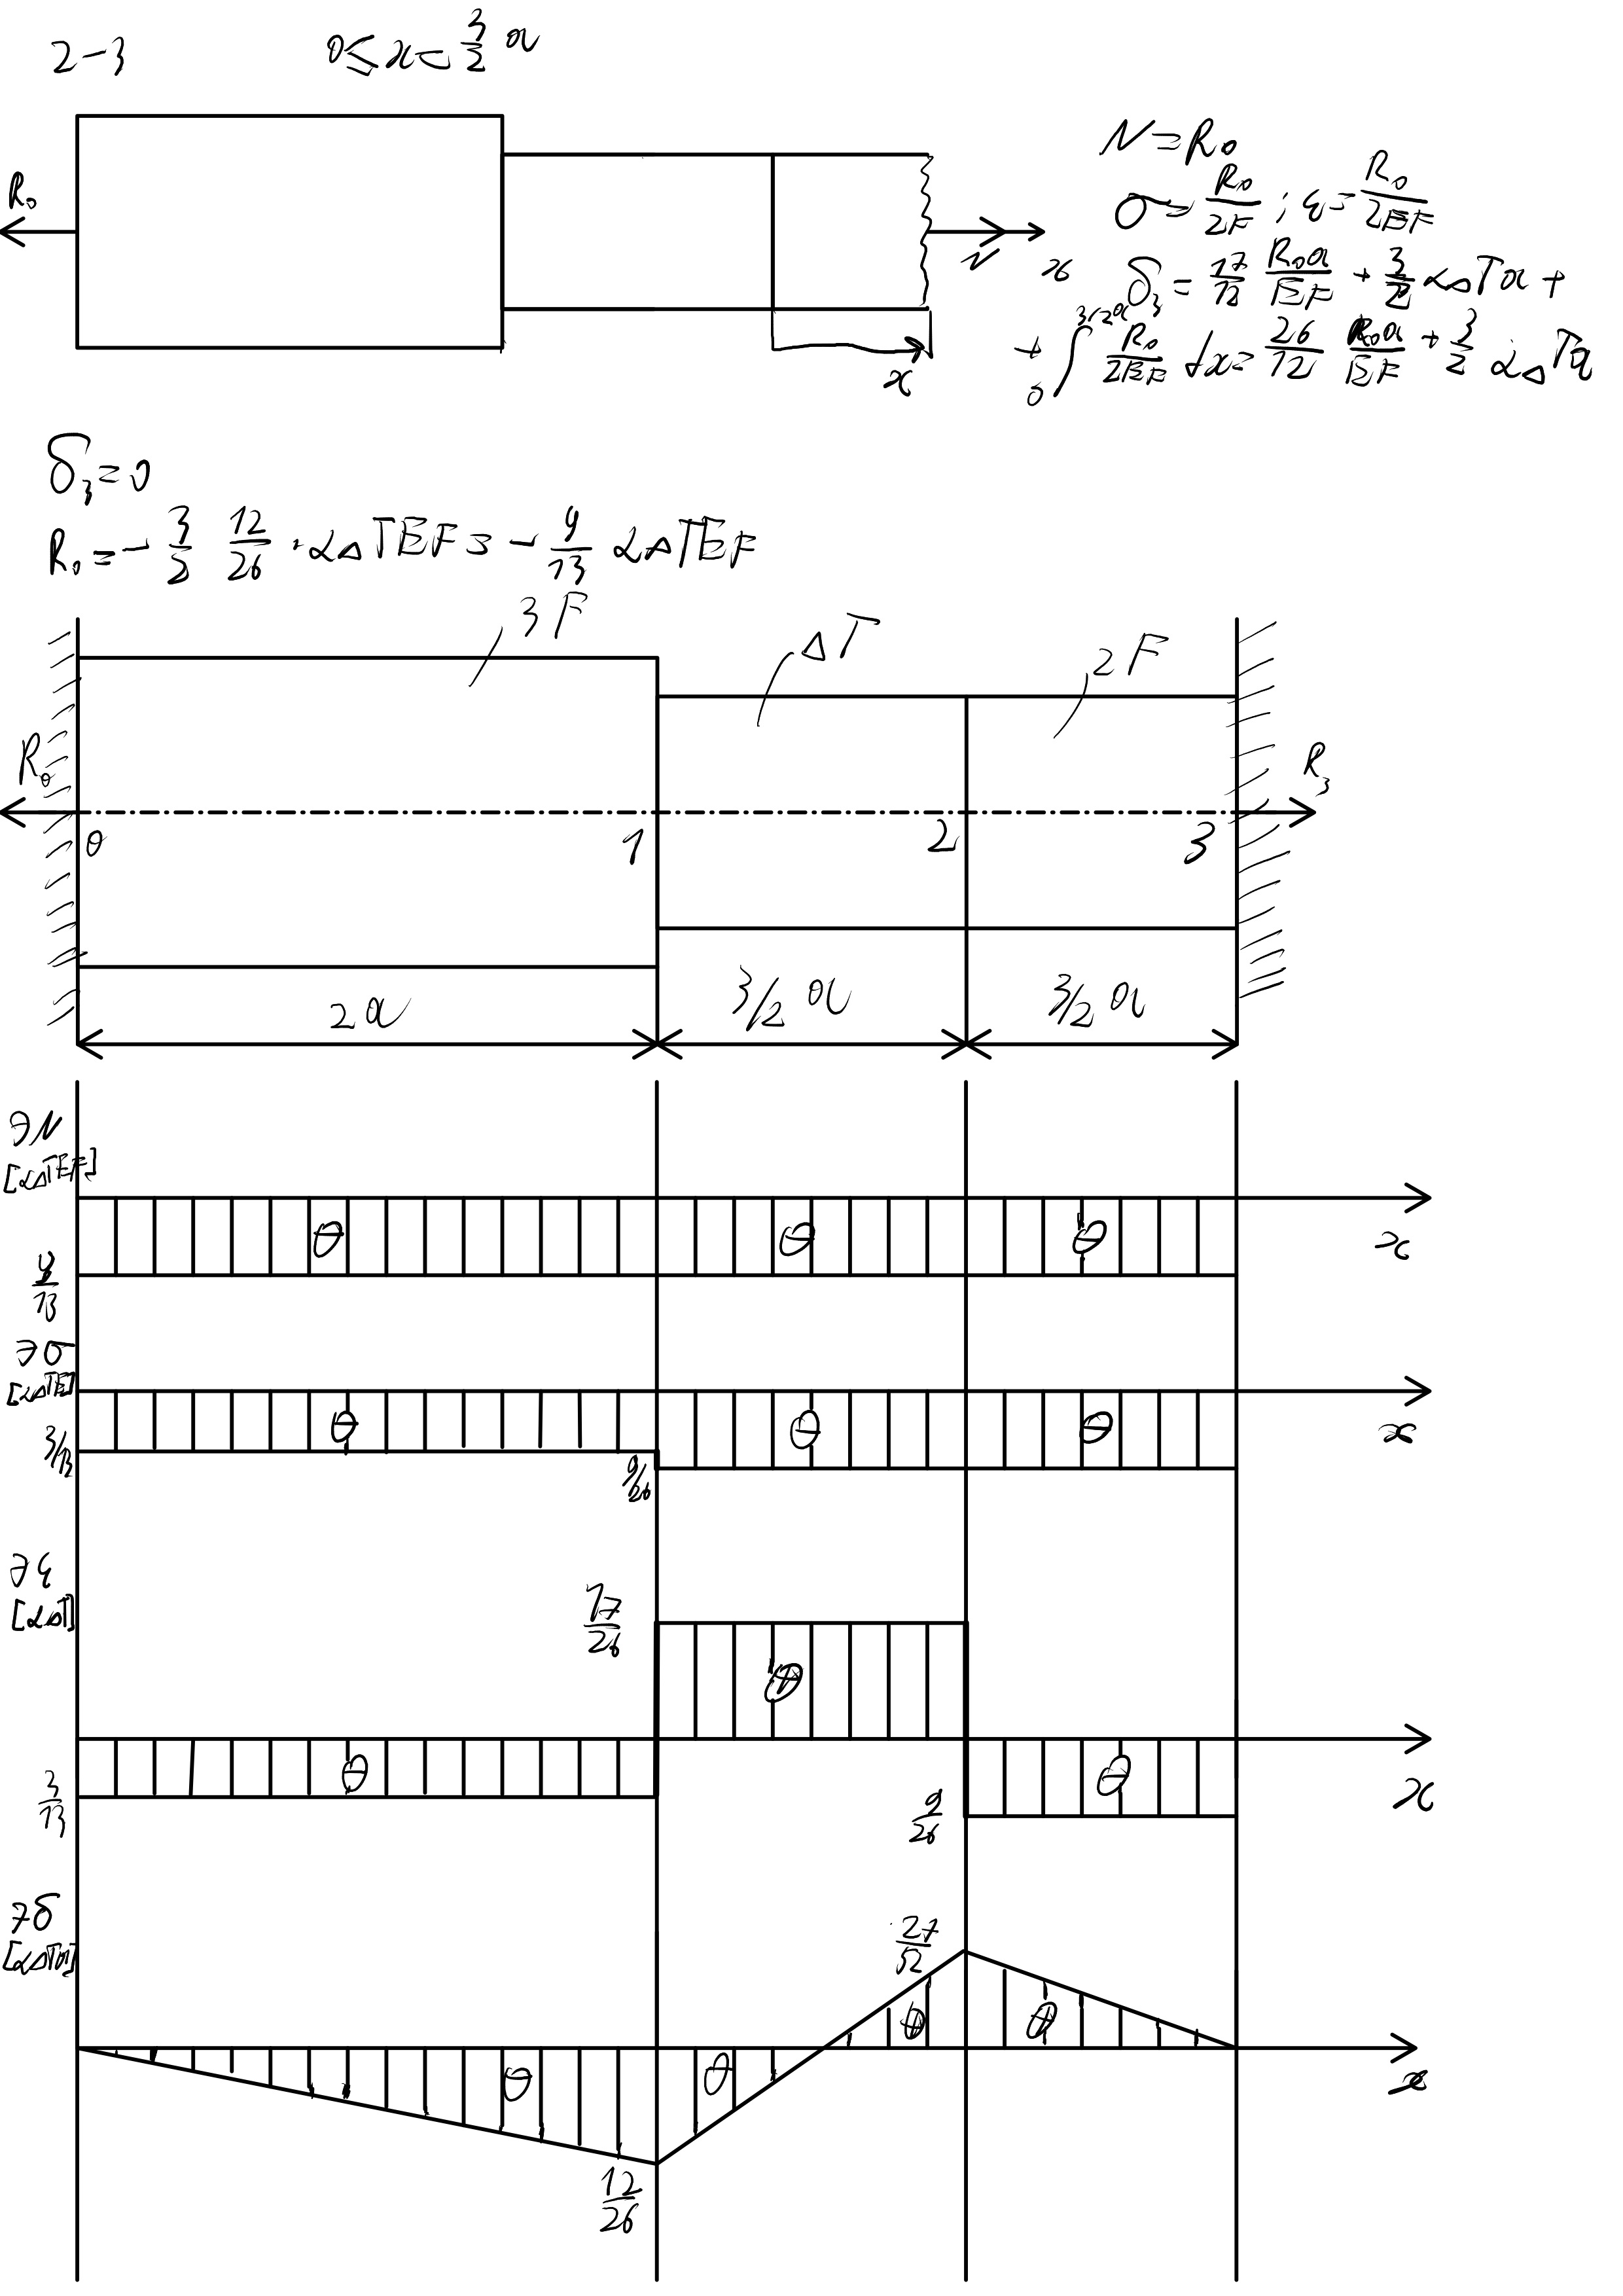 2-3 0≤x≤3/2 a
N=R₀
R₀
σ=R₀/2F ; ε=R₀/2EF
N x
δ₃=17/12 R₀a/EF + 3/2 αΔTa +
+ ∫₀^(3/2a) R₀/2EF dx= 26/12 R₀a/EF + 3/2 αΔTa
x
δ₃=0
R₀=- 3/2 12/26 · αΔTEF = - 9/13 αΔTEF
3F ΔT 2F
R₀ R₃
0 1 2 3
2a 3/2 a 3/2 a
эN
[αΔTEF]
⊖ ⊖ ⊖ x
9/13
эσ
[αΔTE]
⊖ ⊖ ⊖ x
3/13 9/26
эε
[αΔT]
17/26
⊕
⊖ ⊖ x
3/13 9/26
эδ
[αΔTa]
27/52
⊕ ⊕
⊖ ⊖ x
12/26